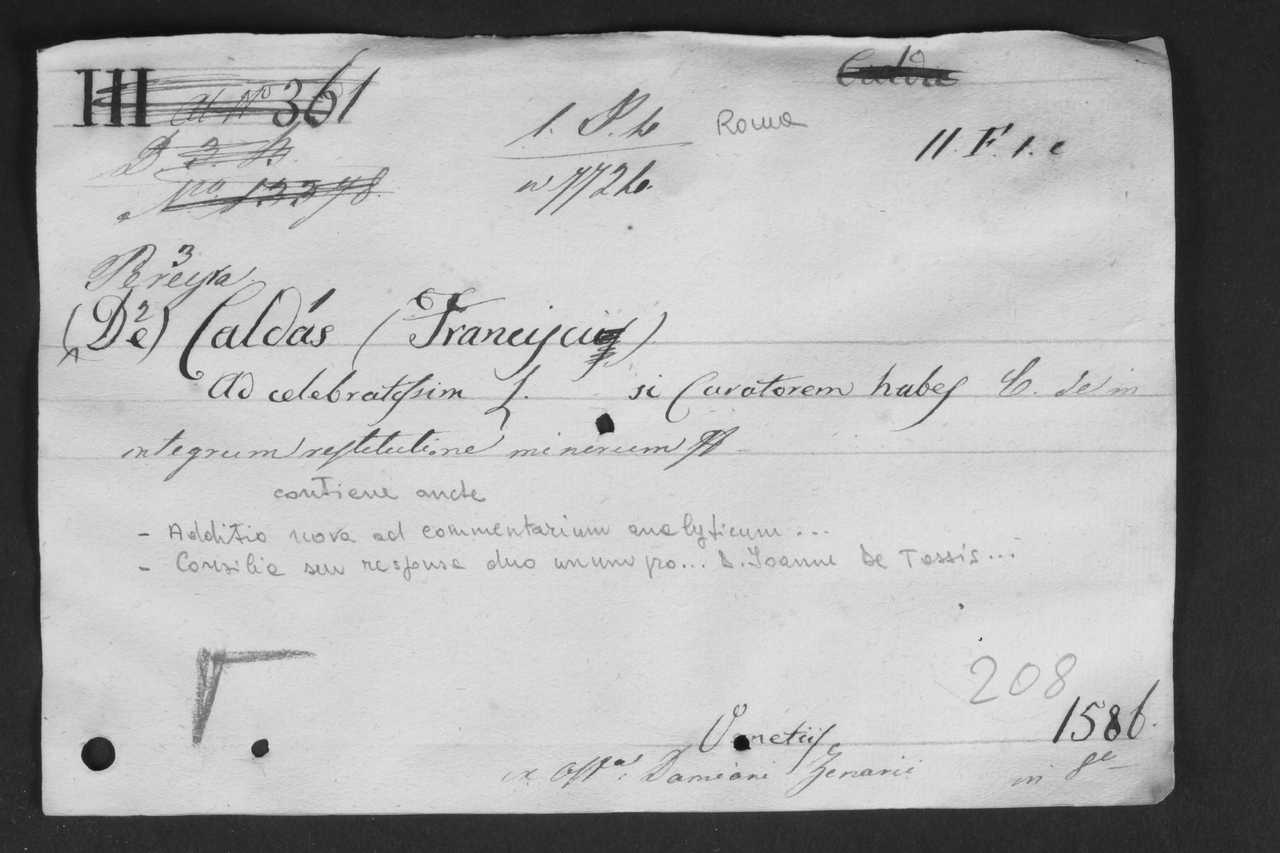 III al No 361
Caldas
D 3 4
1. P. 4 Roma
11. F. 1. c
No 13398.
no 7724
Pereyra 3
(De) 2 Caldás 1 (Francisci)
Ad celebratissim L. si Curatorem habes C. de in
integrum restitutione minorum
contiene anche
- Additio nova ad commentarium analyticum...
- Consilia seu responsa duo unum pro... D. Joanne De Tassis...
208
Venetiis 1586.
ex Offa. Damiani Zenarii in 8o